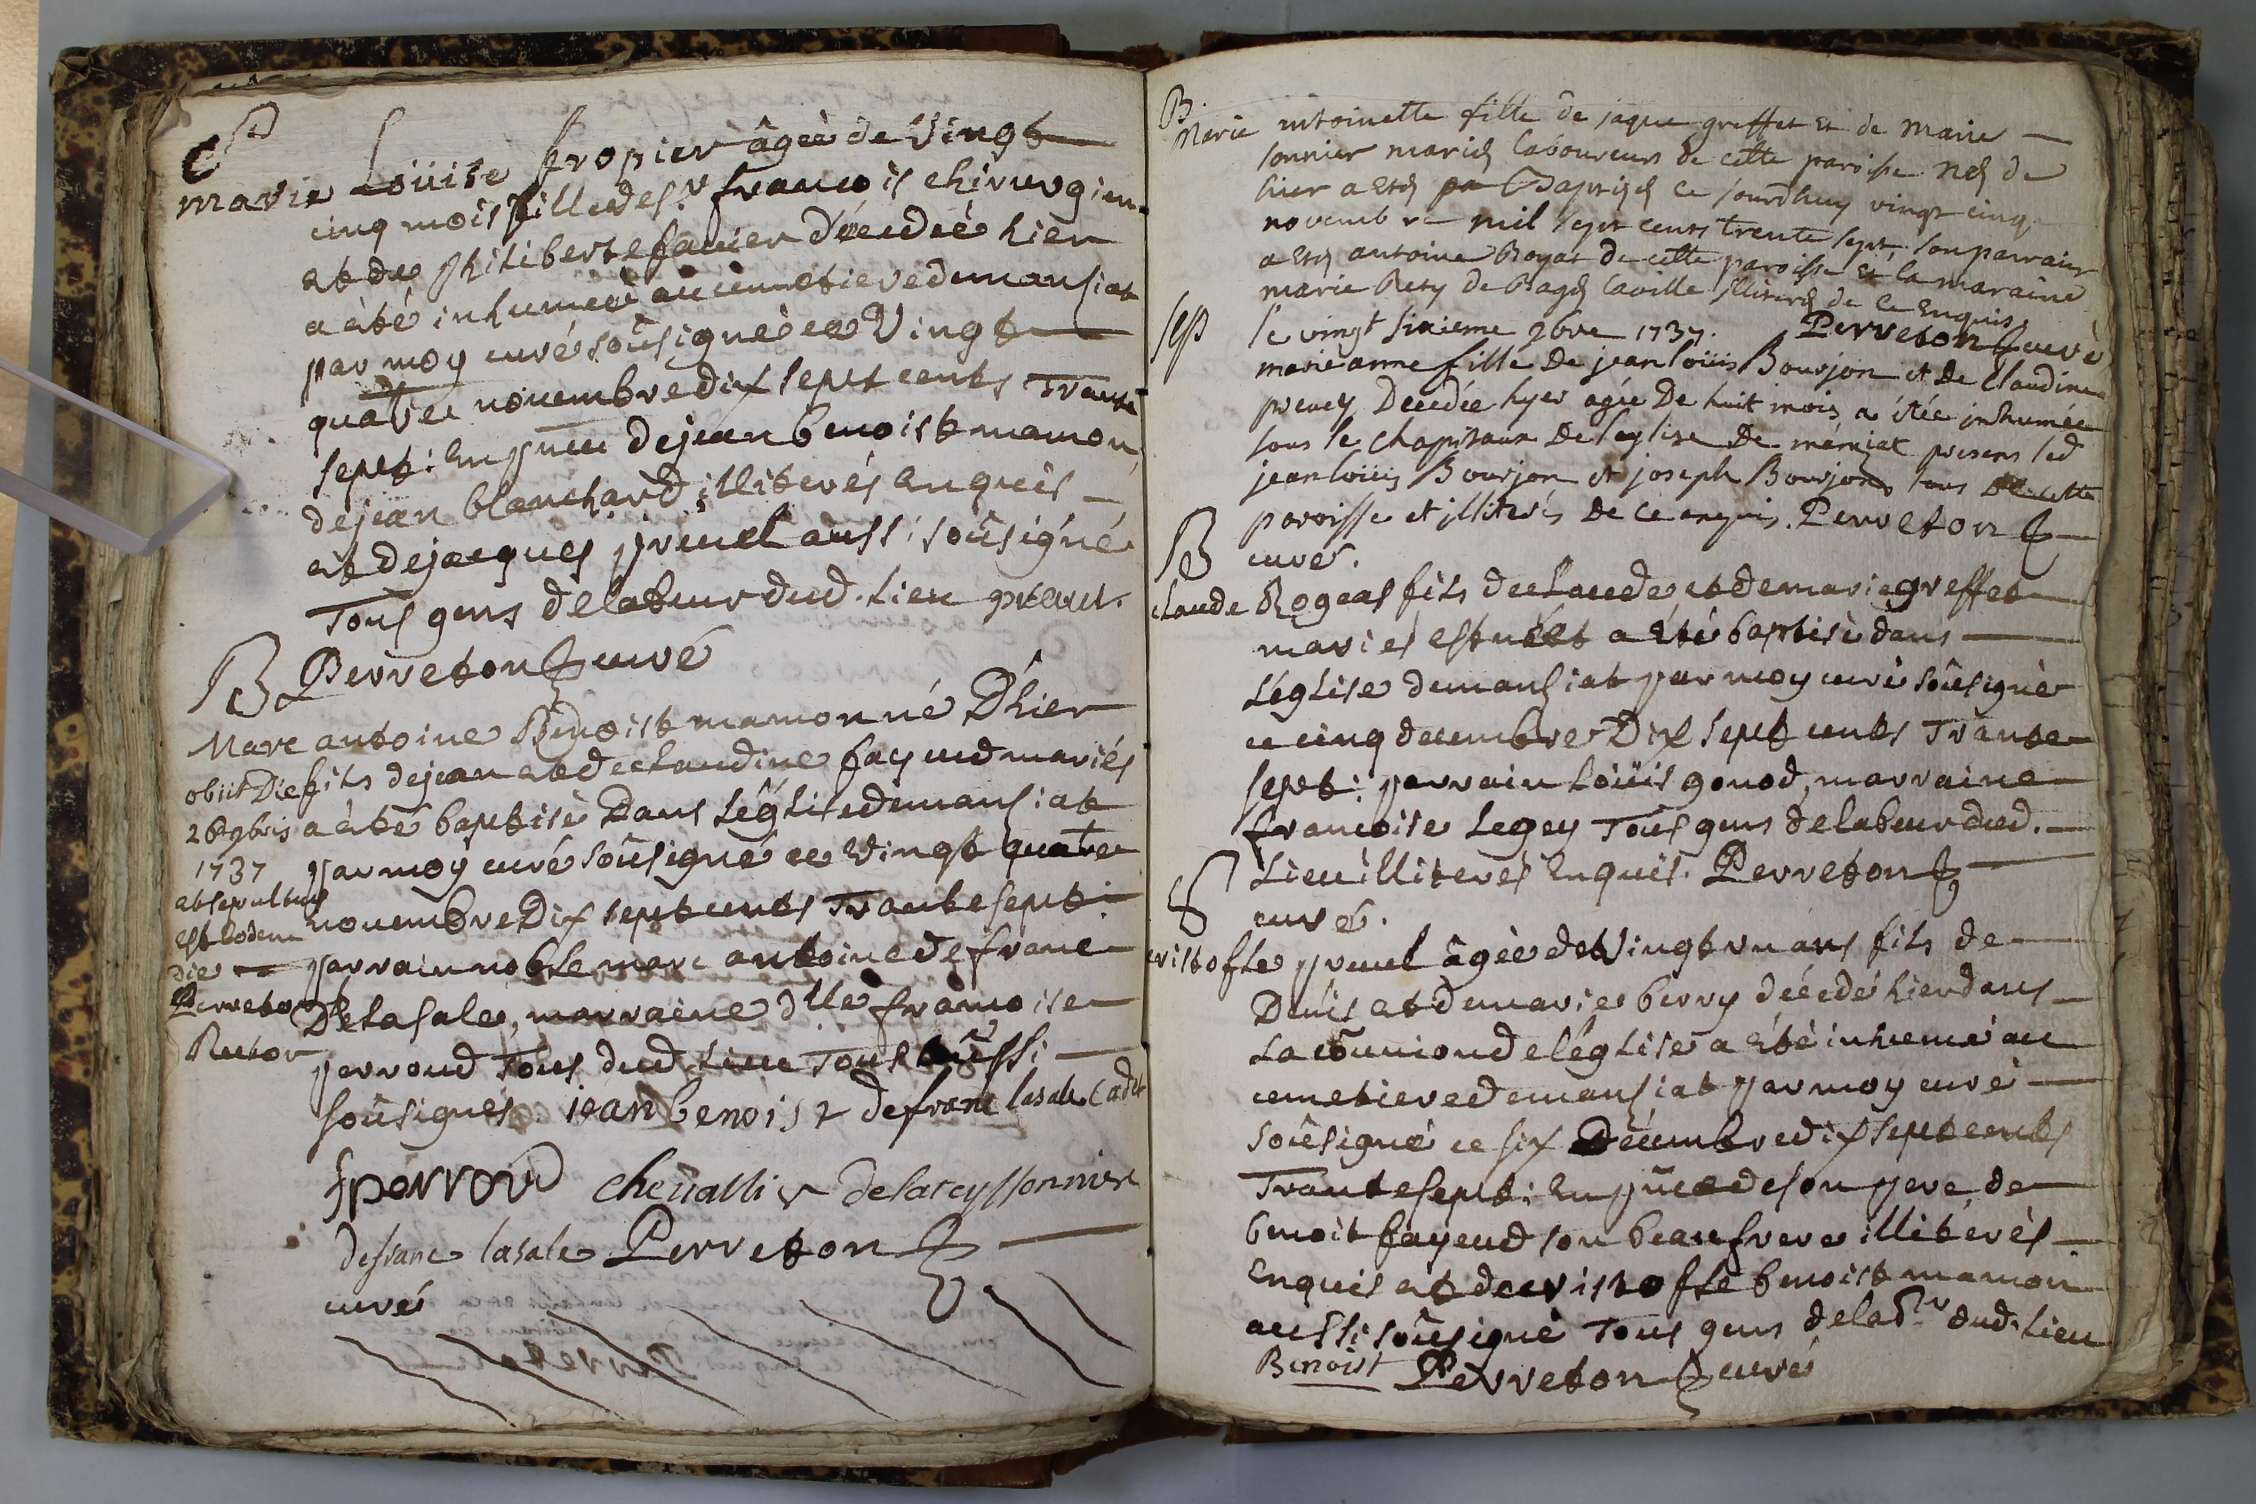 S
marie Loüise fropier âgée de Vingt
cinq mois fille de sr francois chirurgien
et de philiberte favier décedée hier
a été inhumée au cimetiere de mansiat
par moy curé soûsigné ce Vingt
quatre novembre dix sept cents Trante
sept: En pnce de jean benoist mamon,
de jean blanchard illiterés enquis
et de jacques prevel aussi soûsigné
Tous gens de labeur dud. lieu prevel.
Perreton curé
B
Marc antoine Benoist mamon né D'hier
fils de jean et de claudine fayeud mariés
a été baptisé Dans L'église de mansiat
par moy curé soûsigné ce Vingt quatre
novembre Dix sept cents Trante sept:
parrain noble marc antoine de franc
De la sale, marraine dlle francoise
perroud Tous dud. Lieu Tous aussi
soûsignés. iean benoist defranc lasale Cadet
f perroud chevallier delateyssonniere
defranc lasale Perreton
curé
obiit Die
26 9bris
1737
et sepultus
est Eodem
die
Perreton
Rector
B
Marie antoinette fille de jaque greffet Et de Marie
sonnier mariés laboureurs de cette paroisse Née de
hier a Eté Baptisée ce jourdhuy vingt cinq
novembre mil sept cents trente sept son parrain
a Eté antoine Royat de cette paroisse Et la maraine
marie Rety de Bagé laville illiterés de ce Enquis.
Perreton curé
Sep
le vingt sixieme 9bre 1737.
marie anne fille De jean loüis Bourjon et De Claudine
Decedée hyer agée De huit mois a étée inhumée
sous le chapiteau De l'eglise De mansiat presens led
jean loüis Bourjon et joseph Bourjon tous De cette
paroisse et illiterés De ce enquis. Perreton
curé.
B
claude Rogeas fils de claude et de marie greffet
mariés est né et a Eté baptisé dans
L'église de mansiat par moy curé soûsigné
ce cinq decembre Dix sept cents Trante
sept: parrain Loüis gonod, marraine
francoise Legey Tous gens de labeur dud.
Lieu illiterés Enquis. Perreton
curé.
S
cristofle prevel âgée de Vingt un ans fils de
Denis et de marie berry décedé hier dans
La coûnion de l'église a été inhumé au
cimetiere de mansiat par moy curé
soûsigné ce six Décembre dix sept cents
Trante sept: En pnce de son pere, de
benoit fayeud son beaufrere illiterés
Enquis et de cristofle benoist mamon
aussi soûsigné Tous gens de labr dud. Lieu
Benoist Perreton curé